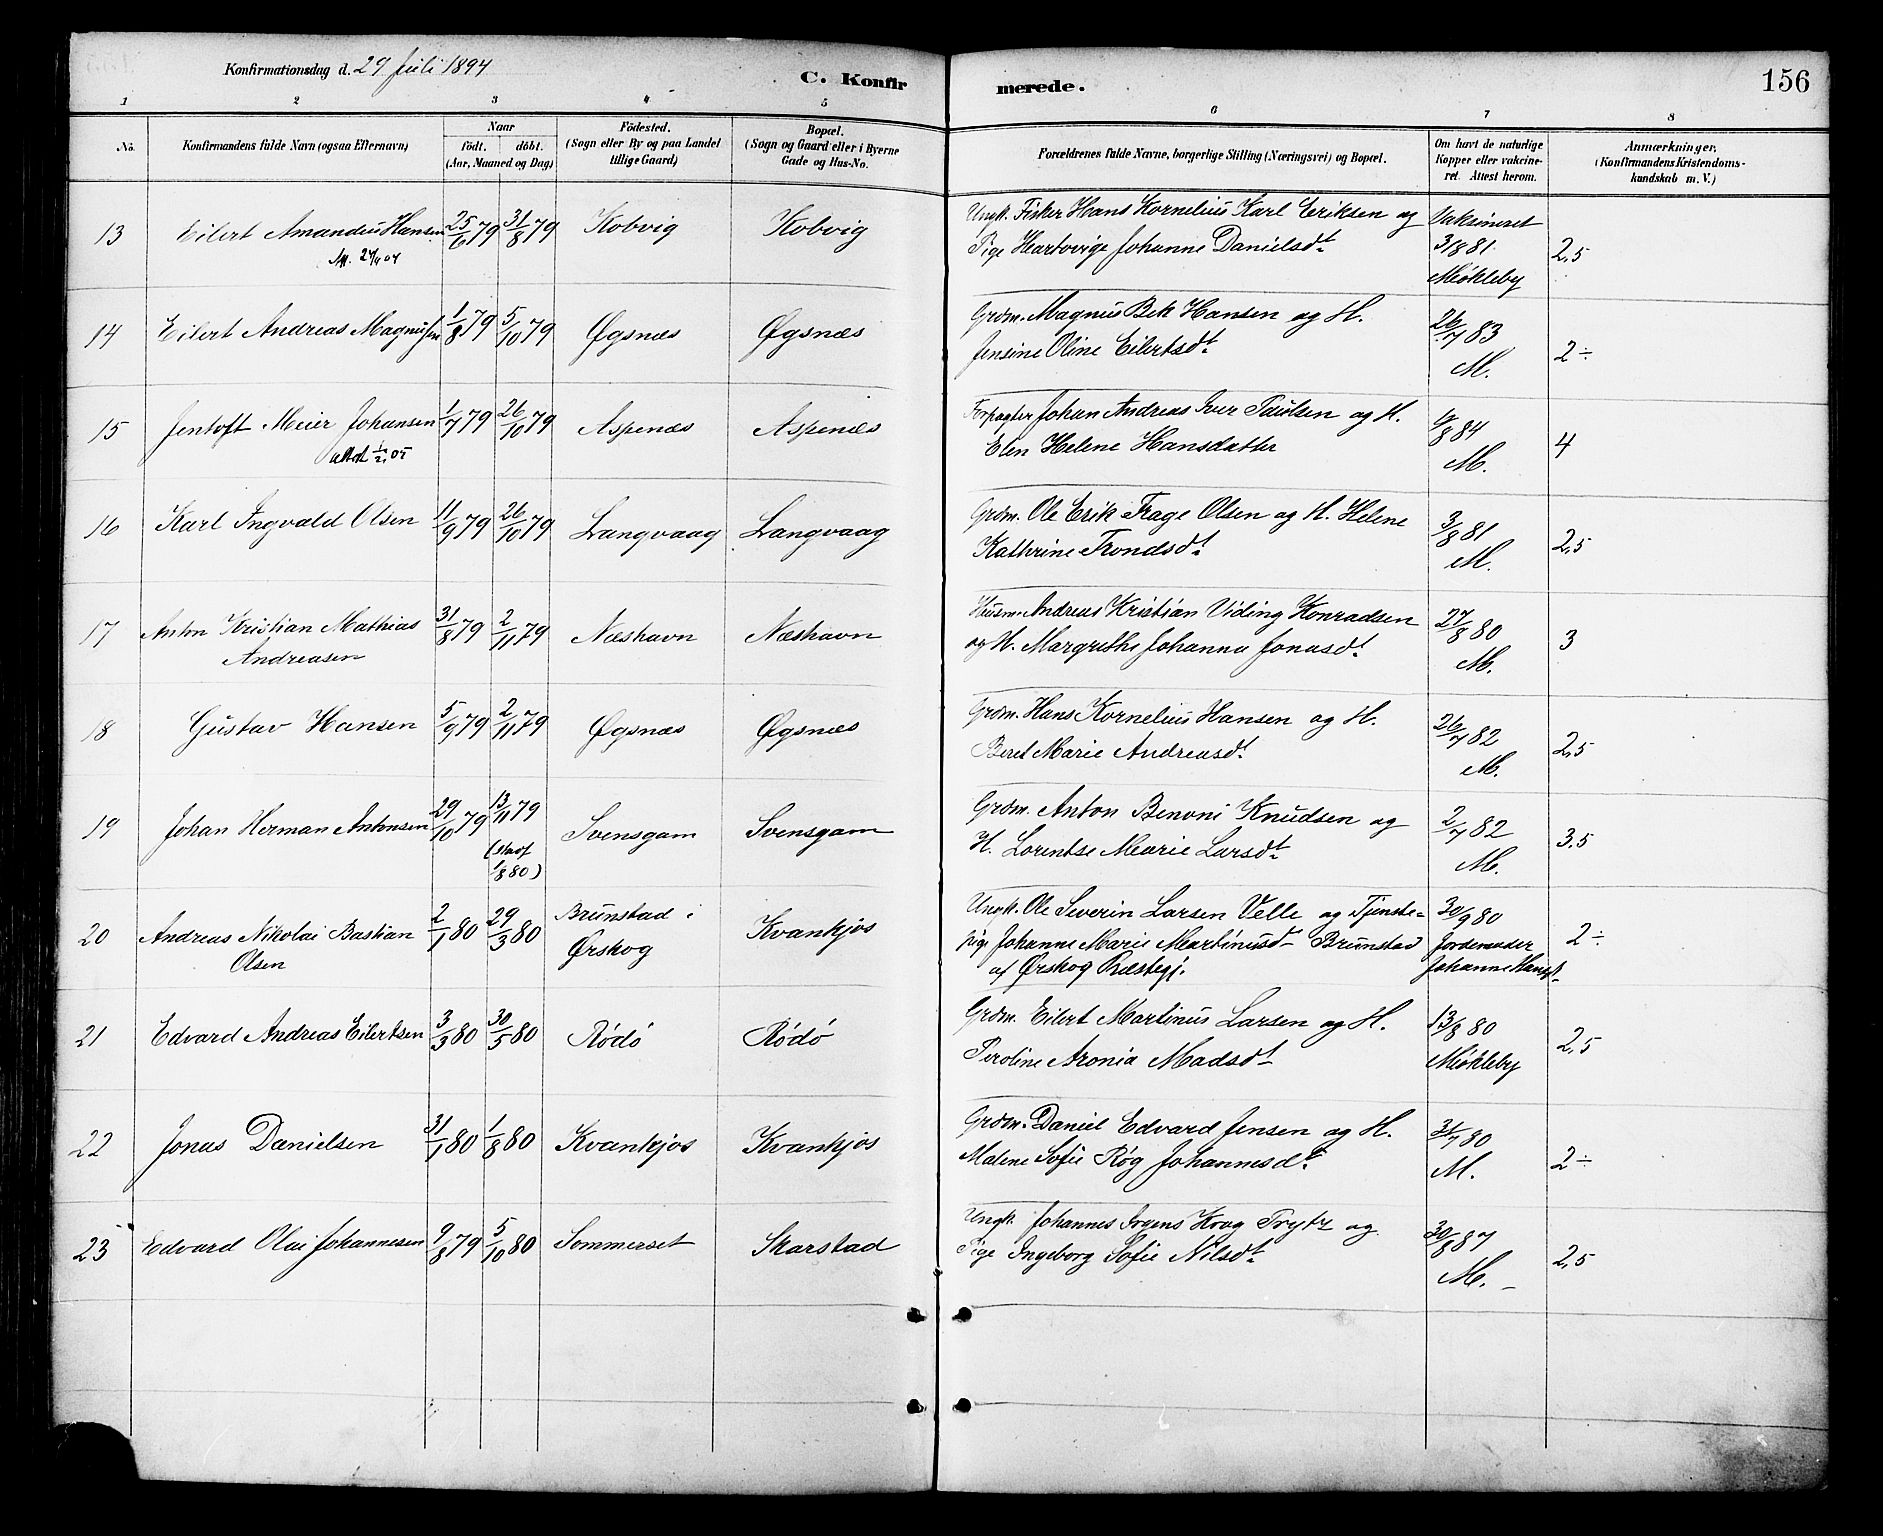 Konfirmationsdag d. 29 Juli 1894
C. Konfirmerede.
156
1 2 3 4 5 6 7 8
No. Konfirmandens fulde Navn (ogsaa Efternavn) Naar födt. döbt. (Aar, Maaned og Dag) Födested. (Sogn eller By og paa Landet tillige Gaard) Bopæl. (Sogn og Gaard eller i Byerne Gade og Hus-No. Forældrenes fulde Navne, borgerlige Stilling (Næringsvei) og Bopæl. Om havt de naturlige Kopper eller vakcineret. Attest herom. Anmærkninger, (Konfirmandens Kristendomskundskab m. V.)
13 Eilert Amandus Hansen 25/6 79 31/8 79 Kobvig Kobvig Ungk. Fisker Hans Kornelius Karl Eriksen og Vaksineret
Pige Hartvige Johanne Danielsdt. 3/8 81. 2,5
Miøkleby
14 Eilert Andreas Magnussen 1/8 79 5/10 79 Øgsnæs Øgsnæs Grdm. Magnus Bek Hansen og H. 26/7 83
Jensine Oline Eilertsdt. M. 2 ÷
15 Jentoft Meier Johansen 1/7 79 26/10 79 Aspenæs Aspenæs Forpagter Johan Andreas Iver Paulsen og H. 9/8 84
Elen Helene Hansdatter M. 4
16 Karl Ingvald Olsen 11/9 79 26/10 79 Langvaag Langvaag Grdm. Ole Erik Frage Olsen og H. Helene 3/8 81
Kathrine Trondsdt. M. 2,5
17 Anton Kristian Mathias 31/8 79 2/11 79 Næshavn Næshavn Husm. Andreas Kristian Viding Konradsen 27/8 80
Andreasen og H. Margrethe Johanna Jonasdt. M. 3
18 Gustav Hansen 5/9 79 2/11 79 Øgsnæs Øgsnæs Grdm. Hans Kornelius Hansen og H. 26/7 82
Beret Marie Andreasdt. M. 2,5
19 Johan Herman Antonsen 29/10 79 13/11 79 Svensgam Svensgam Grdm. Anton Benoni Knudsen og 2/7 82
1/8 80) H. Lorentse Marie Larsdt. M. 3.5
20 Andreas Nikolai Bastian 2/1 80 29/3 80 Brunstad i Kvankjos Ungk. Ole Severin Larsen Velle og Tjeneste- 30/9 80
Olsen Ørskog pige Johanne Marie Martinusdt. Brunstad Jordemoder 2 ÷
af Ørskog Præstegj. Johanne
21 Edvard Andreas Eilertsen 3/3 80 30/5 80 Rödö Rödö Grdm. Eilert Martinus Larsen og H. 13/8 80
Peroline Aronia Madsdt. Miøkleby 2,5
22 Jonas Danielsen 31/1 80 1/8 80 Kvankjos Kvankjos Grdm. Daniel Edvard Jensen og H. 31/7 80
Malene Sofie Røg Johannesdt. M. 2 ÷
23 Edvard Olai Johannesen 9/8 79 5/10 80 Sommerset Skarstad Ungk. Johannes Irgens Krog Trytz og 30/8 87
Pige Ingeborg Sofie Nilsdt. M. 2,5